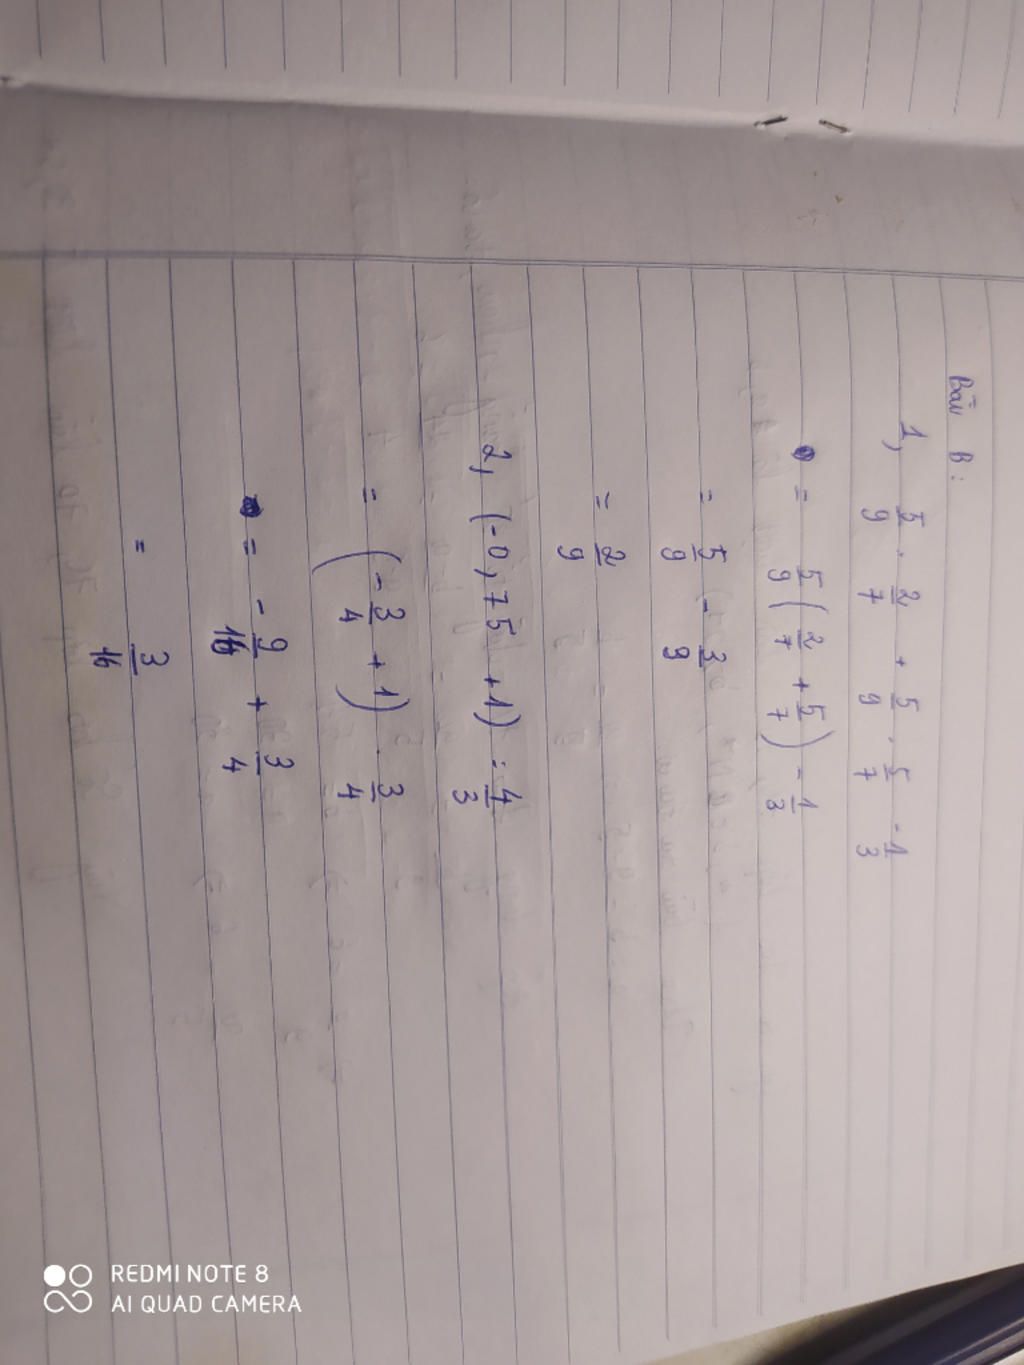 Bài B:
1, 5/9 . 2/7 + 5/9 . 5/7 - 1/3
= 5/9 ( 2/7 + 5/7 ) - 1/3
= 5/9 - 3/9
= 2/9
2, (-0,75 +1) : 4/3
= ( - 3/4 + 1 ) . 3/4
= - 9/16 + 3/4
= 3/16
REDMI NOTE 8
AI QUAD CAMERA